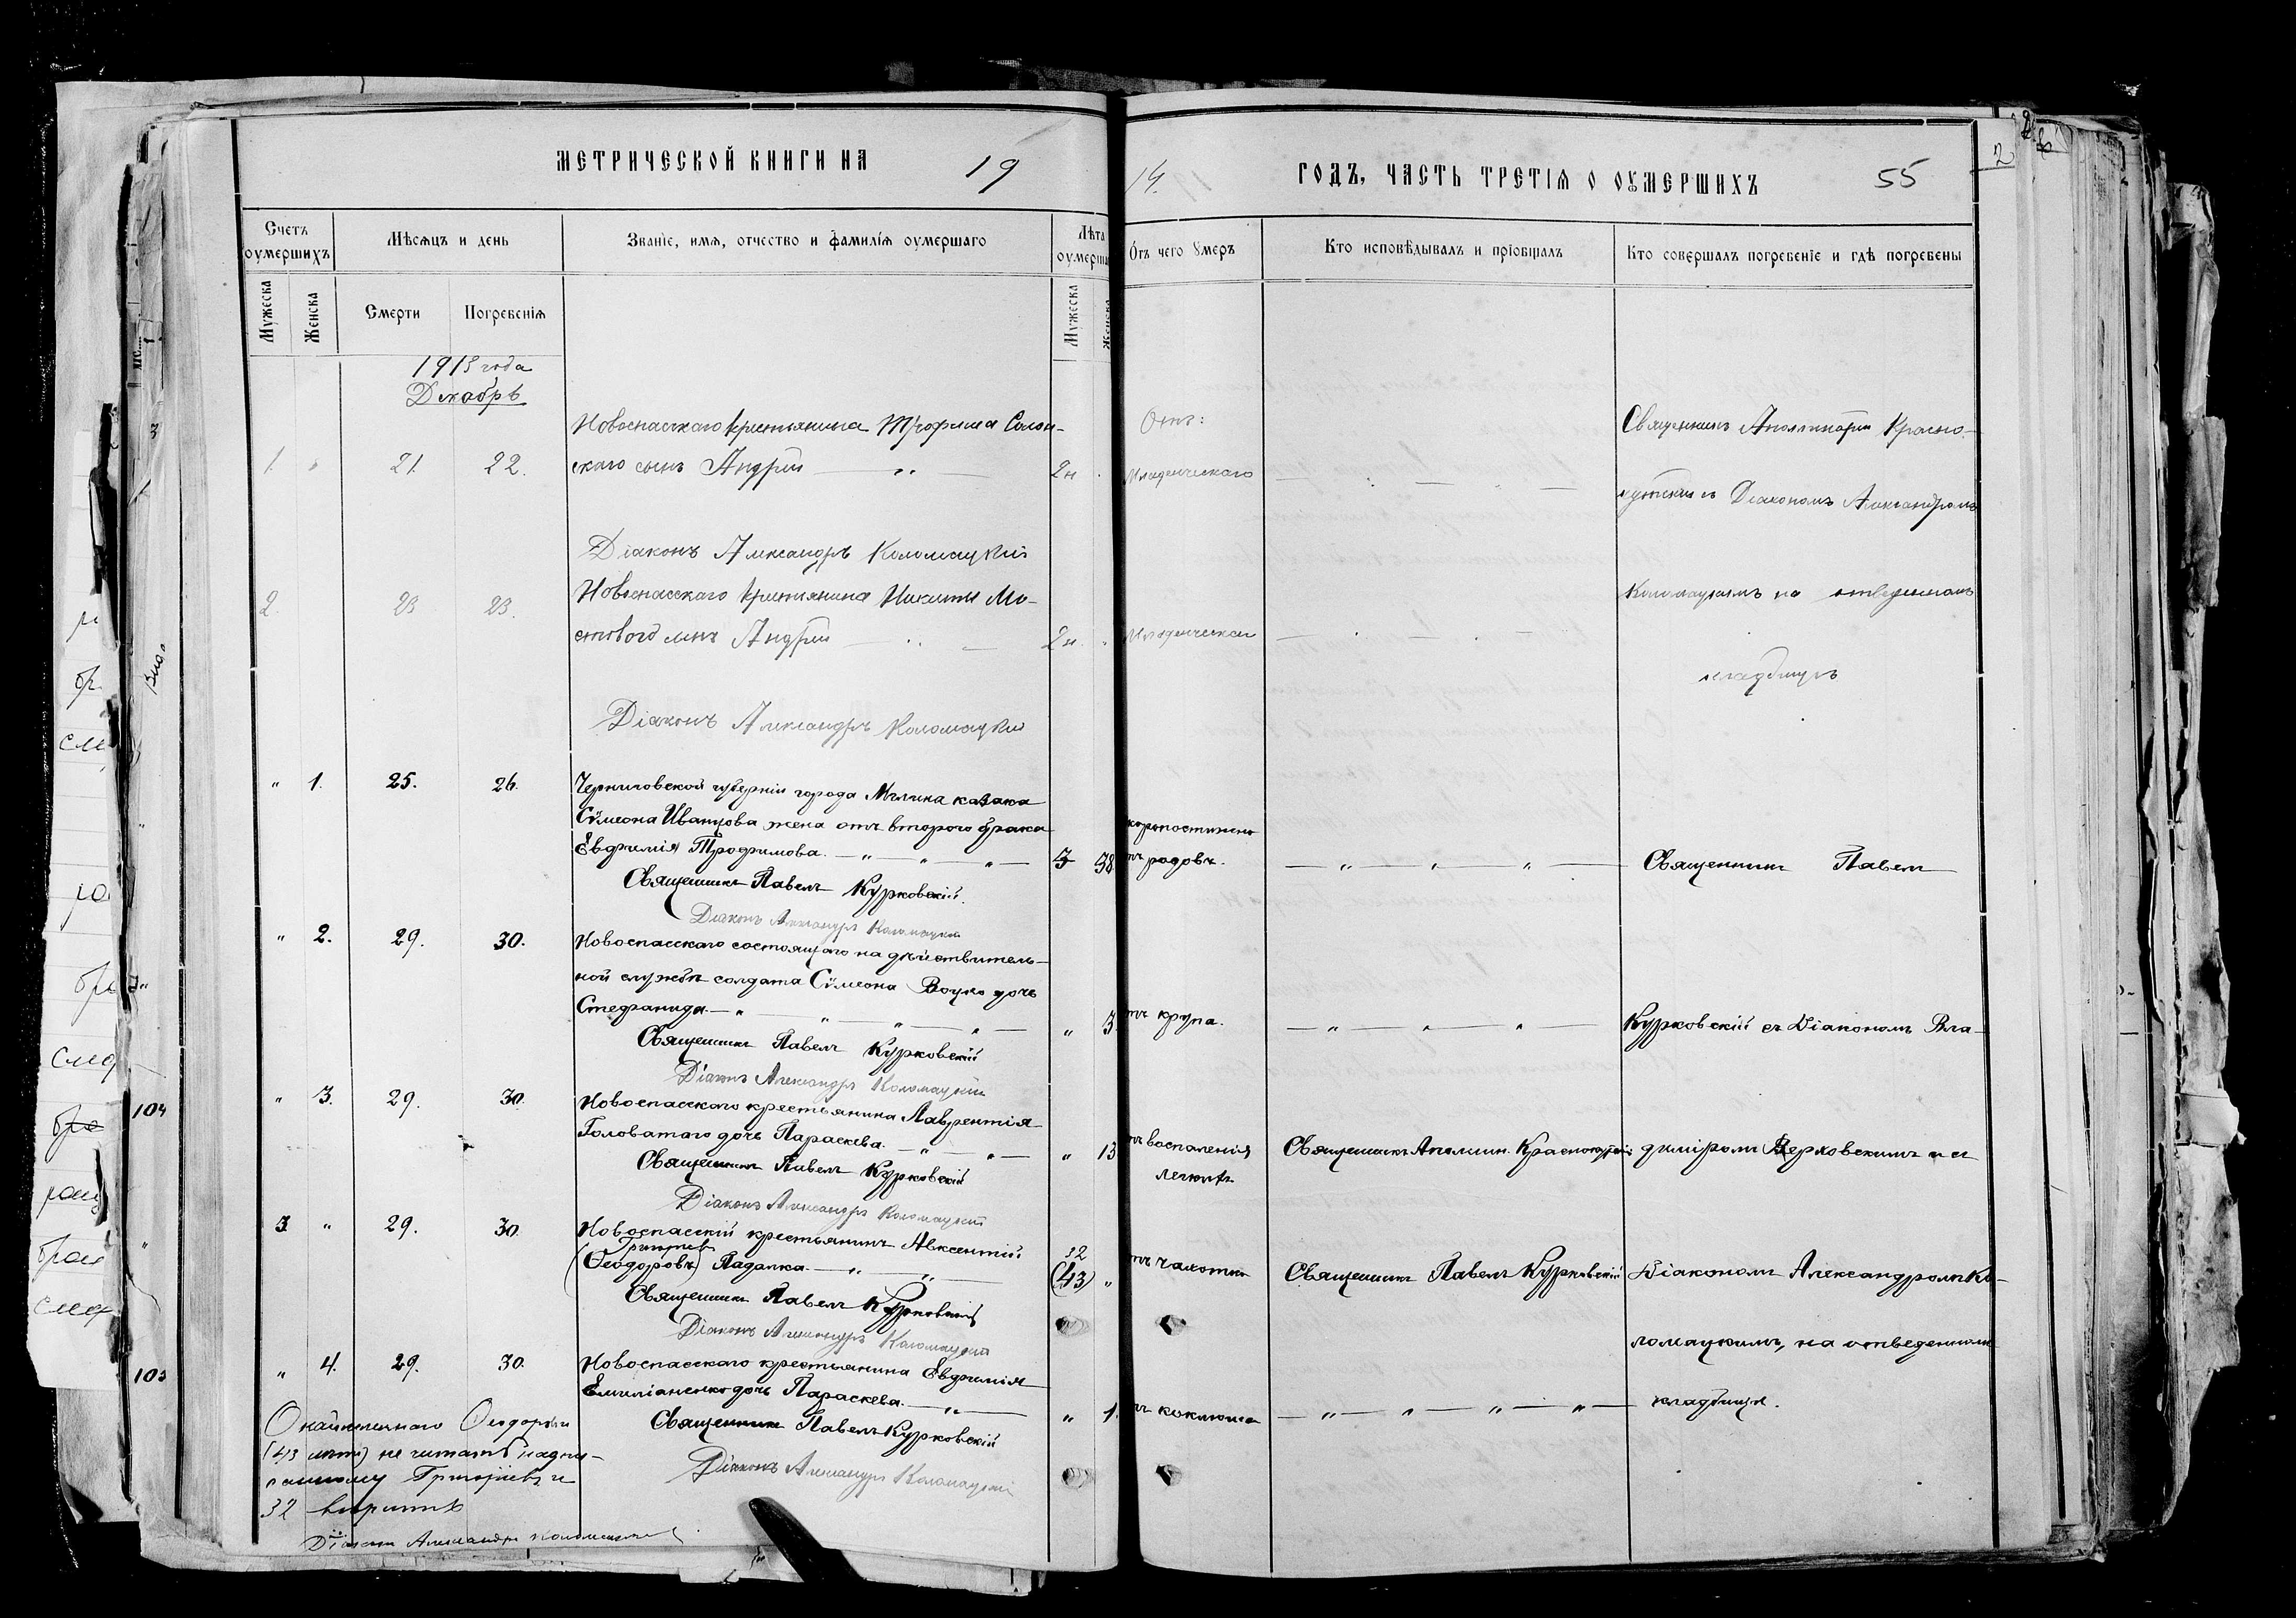 МЕТРИЧЕСКОЙ КНИГИ НА 19
14. ГОДЪ, ЧАСТЬ ТРЕТІЯ О ОУМЕРШИХЪ 55
Счетъ оумершихъ
Мѣсяцъ и день
Званіе, имя, отчество и фамилія оумершаго
Лѣта
Отъ чего умеръ
Кто исповѣдывалъ и пріобщалъ
Кто совершалъ погребеніе и гдѣ погребены
Мужеска
Женска
Смерти
Погребенія
Мужеска
Женска
1913 года
Декабрь
Новоспасскаго крестьянина Трофима Солон-
1. 21. 22. скаго сынъ Андрей 2н
Отъ:
младенческаго
Священникъ Аполлинарій Красно-
кутскій съ Діакономъ Александромъ
Діаконъ Александръ Коломацкій
2. 23 23. Новоспасскаго крестьянина Никиты Мо-
стового сынъ Андрей 2н.
Коломацкимъ на отведенномъ
кладбищѣ
Діаконъ Александръ Коломацкій
" 1. 25. 26. Черниговской губерніи города Мглина казака
Сѵмеона Иванцова жена отъ второго брака
Евфимія Трофимова. 38
родовъ.
Священникъ Павелъ
Священникъ Павелъ Курковскій.
Діаконъ Александръ Коломацкій
" 2. 29. 30. Новоспасскаго состоящаго на дѣйствитель-
ной службѣ солдата Сѵмеона Воцко дочь
Стефанида. " 3
крупа.
Курковскій съ Діакономъ Вла-
Священникъ Павелъ Курковскій
Діаконъ Александръ Коломацкій
" 3. 29. 30. Новоспасскаго крестьянина Лаврентія
Головатаго дочь Параскева. " 13
воспаленія
легкихъ
Священникъ Аполлин. Краснокутскій
диміромъ Верховскимъ и съ
Священникъ Павелъ Курковскій
Діаконъ Александръ Коломацкій
3. " 29. 30. Новоспасскій крестьянинъ Авксентій
Григорьевъ
(Ѳеодоровъ) Падалка. 32
(43) "
чахотки
Священникъ Павелъ Курковскій
Діакономъ Александромъ Ко-
Священникъ Павелъ Курковскій
Діаконъ Александръ Коломацкій
ломацкимъ, на отведенномъ
" 4. 29. 30. Новоспасскаго крестьянина Евфимія
Емиліаненко дочь Параскева. " 1.
коклюша
кладбищѣ.
Священникъ Павелъ Курковскій
Діаконъ Александръ Коломацкій
(43 лѣтъ) не читать, надпи-
санному Григорьевъ и
32 вѣрить
Діаконъ Александръ Коломацкій
104
103